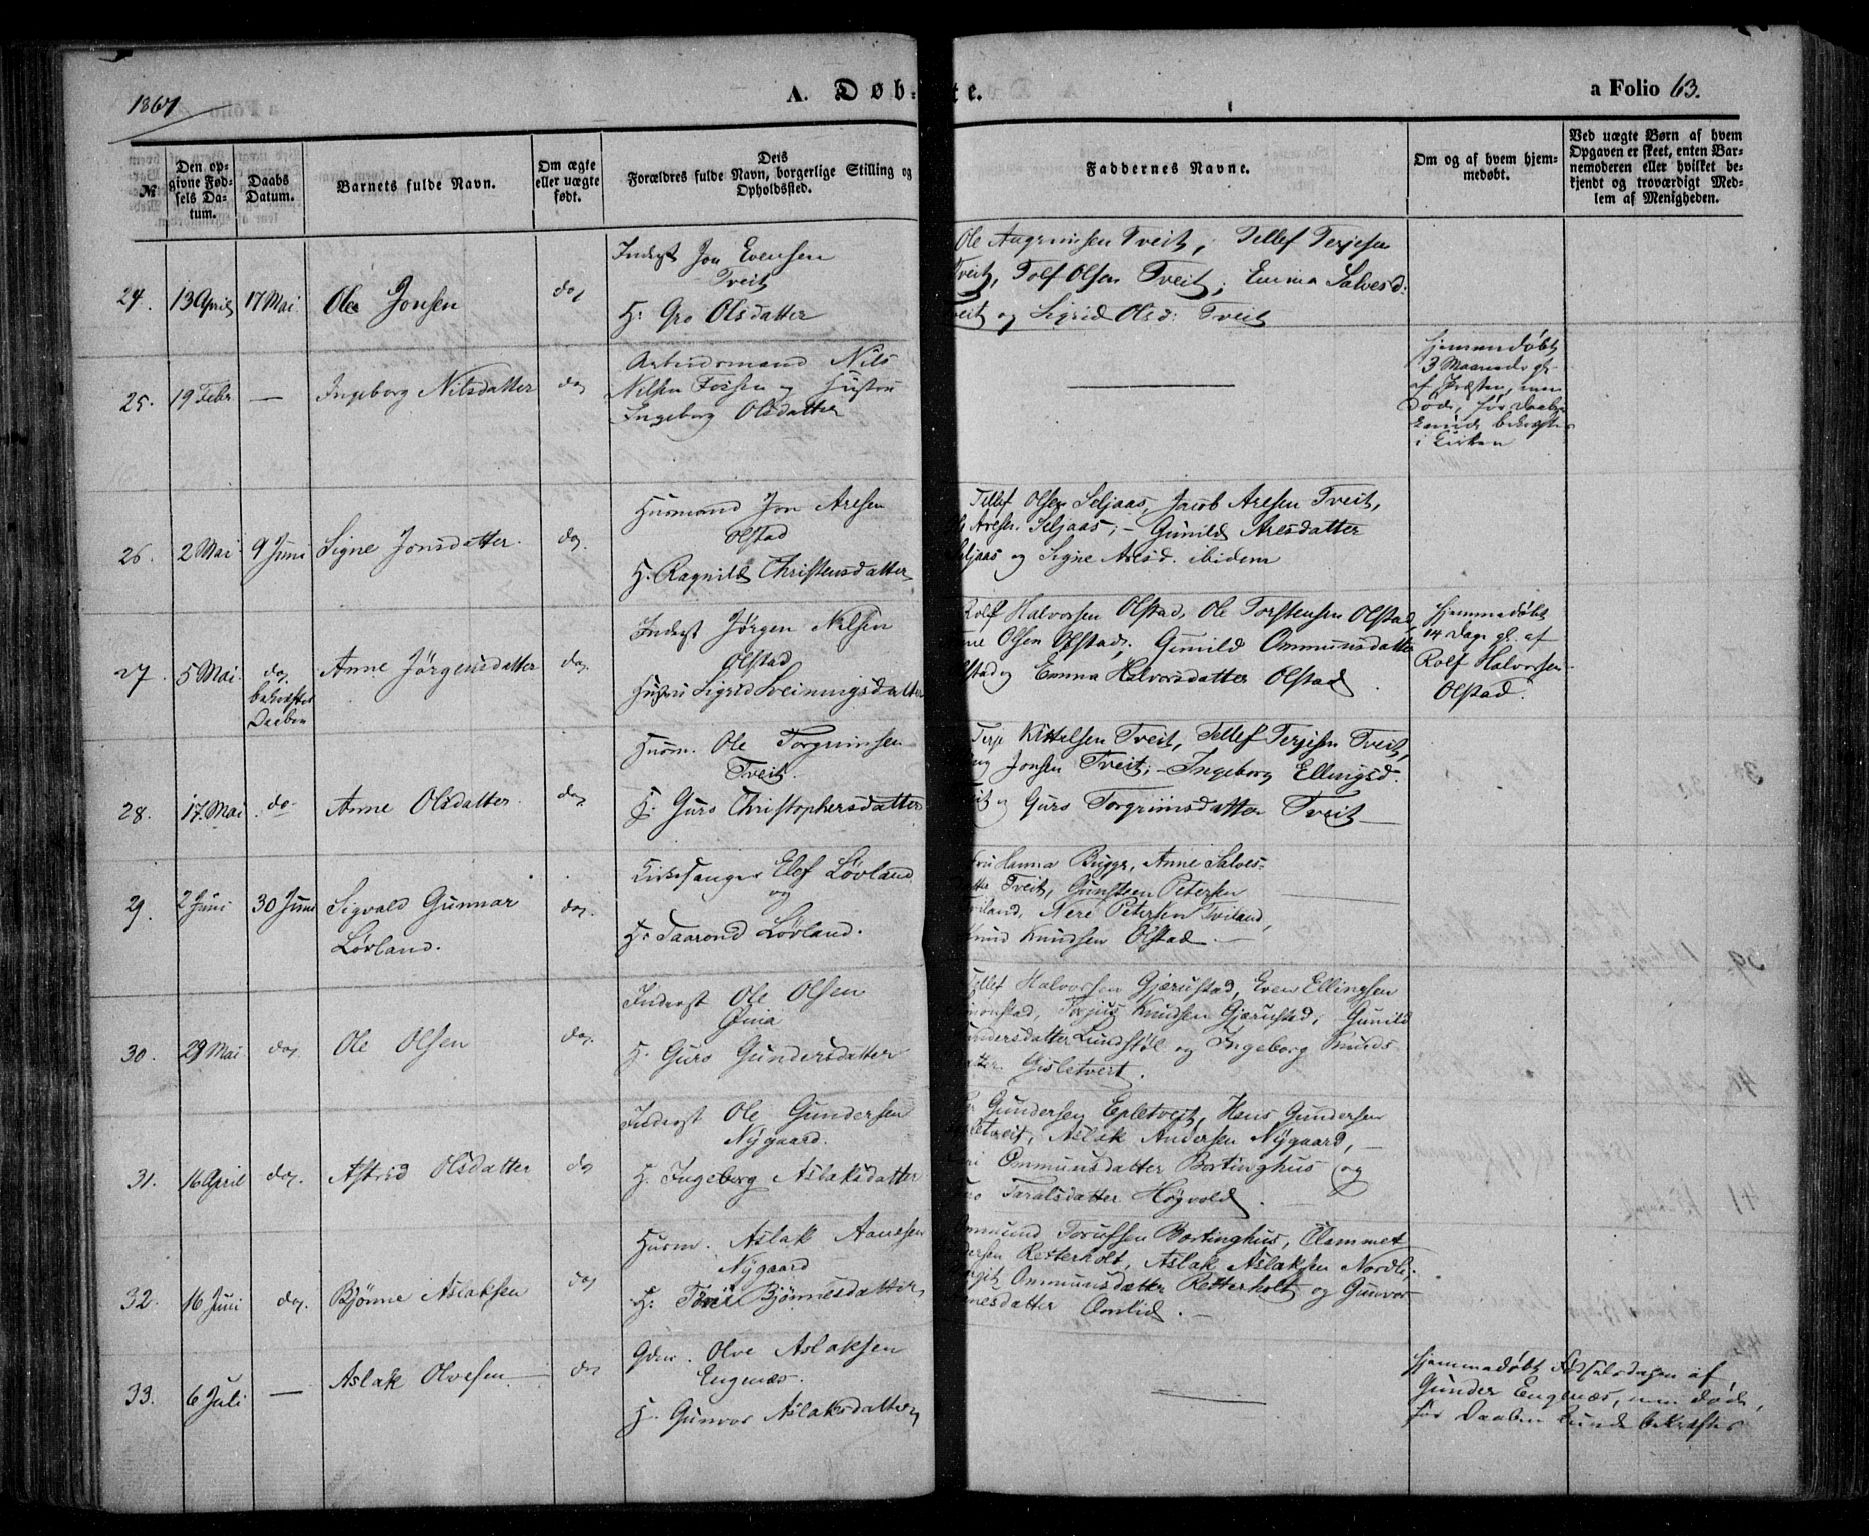 1867
A. Døb-te.
a Folio 63.
№
Den op-
givne Fød-
sels Da-
tum.
Daabs
Datum.
Barnets fulde Navn.
Om ægte
eller uægte
født.
Deis
Forældres fulde Navn, borgerlige Stilling og
Opholdssted.
Faddernes Navne.
Om og af hvem hjem-
medøbt.
Ved uægte Børn af hvem
Opgaven er skeet, enten Bar-
nemoderen eller hvilket be-
kjendt og troværdigt Med-
lem af Menigheden.
24. 13 April 17 Mai Ole Jonsen do
Inderst Jon Evensen
Tveit
H: Gro Olsdatter
Ole Augrimsen Tveit, Tellef Terjesen
Tveit, Tolf Olsen Tveit; Emma Salvesd:
Tveit og Sigrid Olsd: Tveit
25. 19 Febr. — Ingeborg Nilsdatter do
Arbeidsmand Nils
Nilsen Fossen og Hustru
Ingeborg Olsdatter
hjemmedøbt
3 Maaneder gl.
af Præsten, men
døde, før Daaben
kunde bekræftes
i Kirken
26. 2 Mai 9 Juni Signe Jonsdatter. do.
Husmand Jon Aresen
Olstad
H. Ragnild Christensdatter
Tellef Olsen Seljaas, Jacob Aresen Tveit,
Aresen Seljaas; – Gunild Aresdatter
Seljaas og Signe Aresd. ibidem
27. 5 Mai do. bekræftet Daaben Anne Jørgensdatter do.
Inderst Jørgen Nilsen
Olstad
Hustru Sigrid Sveinungsdatter
Rolf Halvorsen Olstad, Ole Torstensen Olstad,
Olsen Olstad; Gunild Ommundsdatter
Olstad og Emma Halvorsdatter Olstad.
hjemmedøbt
14 Dage gl. af
Rolf Halvorsen
Olstad.
28. 17. Mai do Anne Olsdatter. do.
Husm. Ole Torgrimsen
Tveit.
H. Guro Christophersdatter
Terje Kittelsen Tveit, Tellef Terjesen Tveit,
Jonsen Tveit; – Ingeborg Ellingsd.
Tveit og Guro Torgrimsdatter Tveit —
29. 2 Juni 30 Juni Sigvald Gunnar
Løvland. do.
Kirkesanger Elef Løvland
og
H: Taarond Løvland.
Fru Hanna Bugge, Anne Salves-
datter Tveit, Gunsteen Petersen
Tviland, Nere Petersen Tviland,
Knud Knudsen Olstad. —
30. 29 Mai do. Ole Olsen do.
Inderst Ole Olsen
H. Guro Gundersdatter
Tellef Halvorsen Gjærustad, Even Ellingsen
Simonstad, Torjus Knudsen Gjærustad; Gunild
Gundersdatter Lundstøl og Ingeborg Knuds-
datter Gisletveit.
31. 16 April do. Astrid Olsdatter do
Inderst Ole Gundersen
Nygaard.
H. Ingeborg Aslaksdatter
Gundersen Epletveit, Hans Gundersen
Epletveit, Aslak Andersen Nygaard, —
Ommunsdatter Bortinghus og
Taralsdatter Høgvold.
32. 16 Juni do. Bjønne Aslaksen do
Husm. Aslak Aanesen
Nygaard
H: Tone Bjønnesdatter
Ommund Torussen Bortinghus, Olammet
Retterholt, Aslak Aslaksen Nordli;
Ommunsdatter Retterholt og Gunvor
Omlid. —
33. 6 Juli — Aslak Olvesen do
Gdm. Olve Aslaksen
Engenæs.
H. Gunvor Aslaksdatter
hjemmedøbt Fødselsdagen af
Gunder Engenæs, men døde,
før Daaben kunde bekræftes